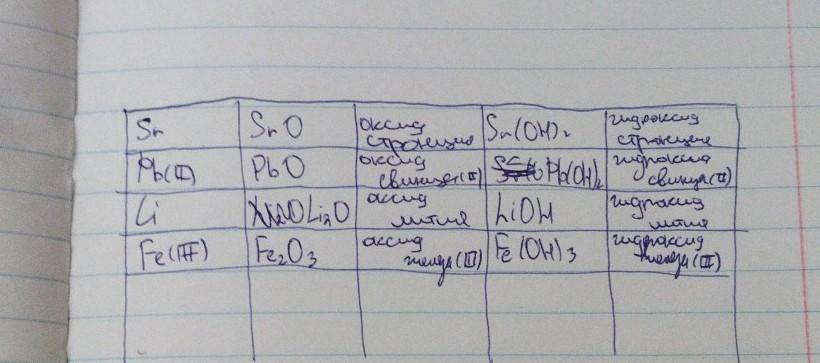 Sr SrO оксид стронция Sr(OH)₂ гидроксид стронция
Pb(II) PbO оксид свинца(II) Pb(OH)₂ гидроксид свинца(II)
Li Li₂O оксид лития LiOH гидроксид лития
Fe(III) Fe₂O₃ оксид железа(III) Fe(OH)₃ гидроксид железа(III)